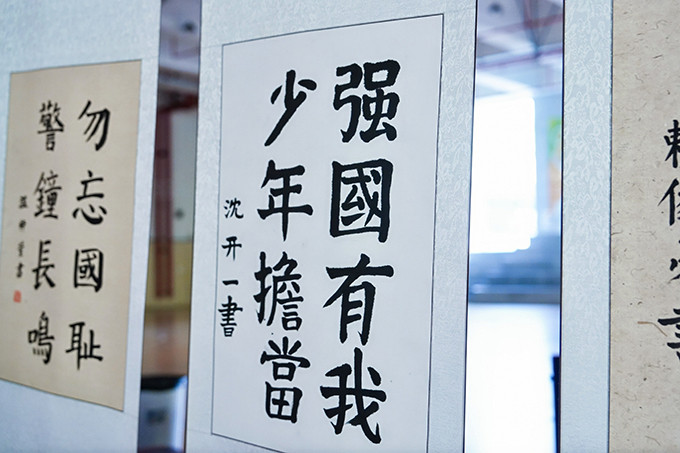 勿忘國耻
警鐘長鳴
强國有我
少年擔當
沈开一書